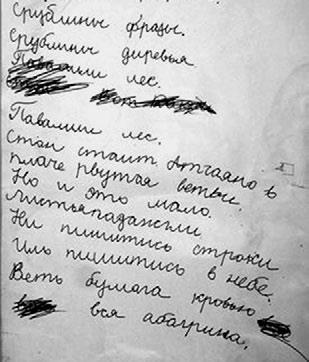 Срублиные фразы.
Срублиные диревья
лес.
Павалили лес.
Стон стаит. Атчаяно в
плаче рвутая ветьви.
Но и это мало.
листьяпаданьями
Ни пишитись строки
Иль пишитись в небе.
Веть бумага кровью
вся абагрина.